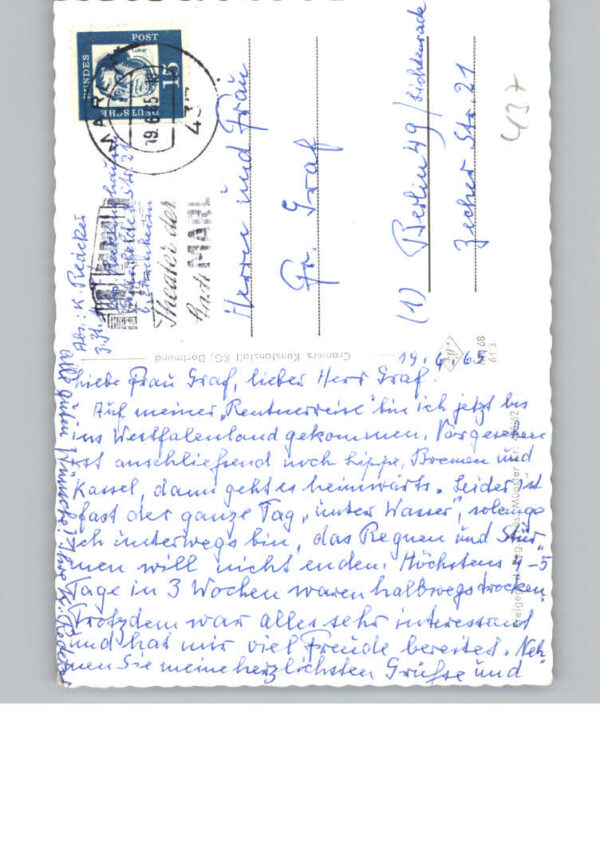 DEUTSCHE
BUNDES
POST
15
MARL
19.6.65
437
Theater der
Stadt MARL
Abs.: K. Redeker
Herrn und Frau
Fr. Graf
(1) Berlin 49/Lichtenrade
Zescher Str. 21
437
Cramers Kunstanstalt KG, Dortmund
19.6.65
Liebe Frau Graf, lieber Herr Graf!
Auf meiner „Rentnerreise" bin ich jetzt bis
ins Westfalenland gekommen. Vorgesehen
ist anschließend noch Lippe, Bremen und
Kassel, dann geht es heimwärts. Leider ist
fast der ganze Tag „unter Wasser", solange
ich unterwegs bin, das Regnen und Stür-
men will nicht enden. Höchstens 4-5
Tage in 3 Wochen waren halbwegs trocken.
Trotzdem war alles sehr interessant
und hat mir viel Freude bereitet. Neh-
men Sie meine herzlichsten Grüße und
alle guten Wünsche! Ihre K. Redeker